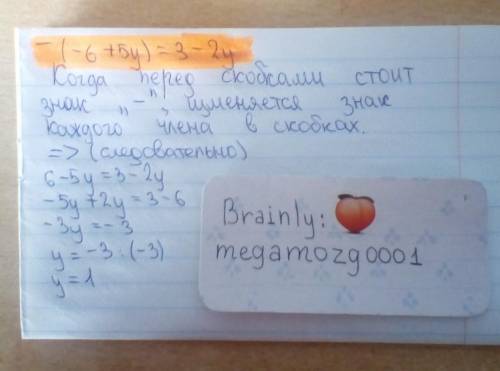 -(-6+5y)=3-2y
Когда перед скобками стоит
знак „-“, изменяется знак
каждого члена в скобках.
=> (следовательно)
6-5y=3-2y
-5y+2y=3-6
-3y=-3
y=-3:(-3)
y=1
Brainly:
megamozg0001